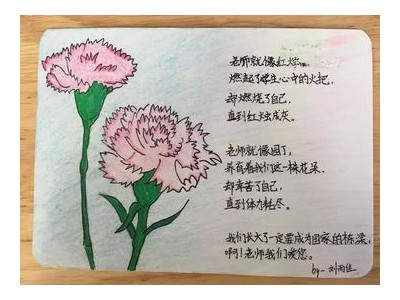 老师就像红烛,
燃起了学生心中的火把,
却燃烧了自己,
直到红烛成灰。
老师就像园丁,
养育着我们这一株花朵,
却辛苦了自己,
直到体力耗尽。
我们长大了一定要成为国家的栋梁,
啊!老师我们爱您。
by-刘雨佳